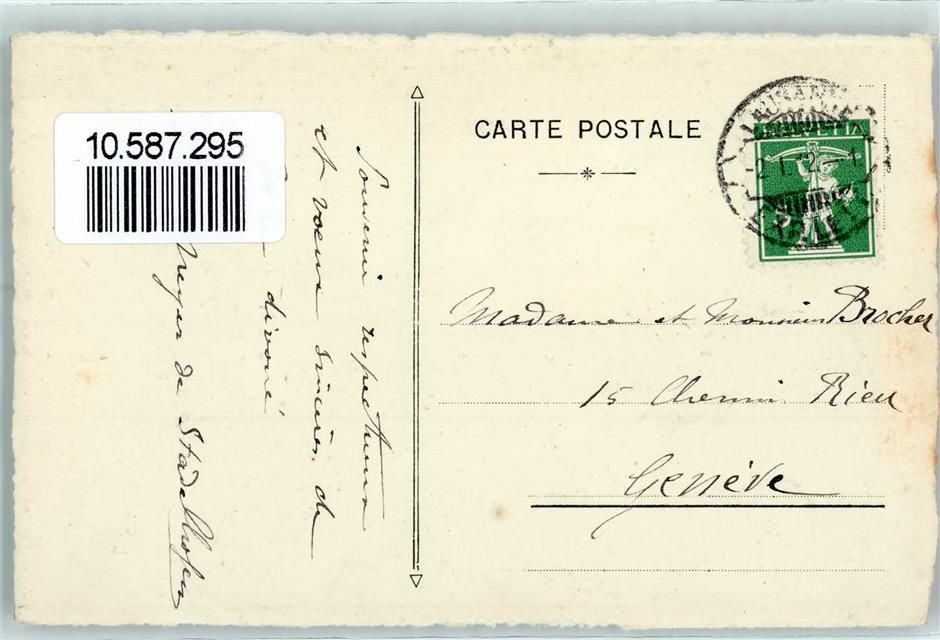 10.587.295
CARTE POSTALE
HELVETIA
Souvenir respectueux
et voeux sincères de
dévoué
Meyer de Stadelhofen
Madame et Monsieur Brocher
15 Chemin Rieu
Genève